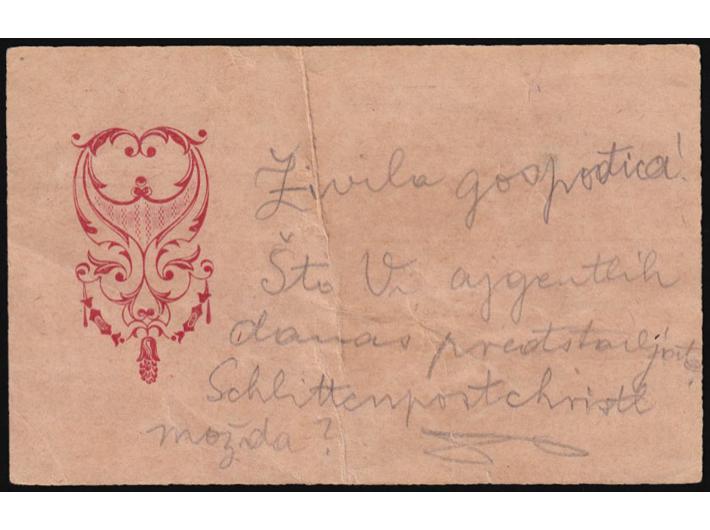 Živila gospođica!
Što Vi ajgentlih
danas predstavljate?
Schlittenpostchristl
možda?